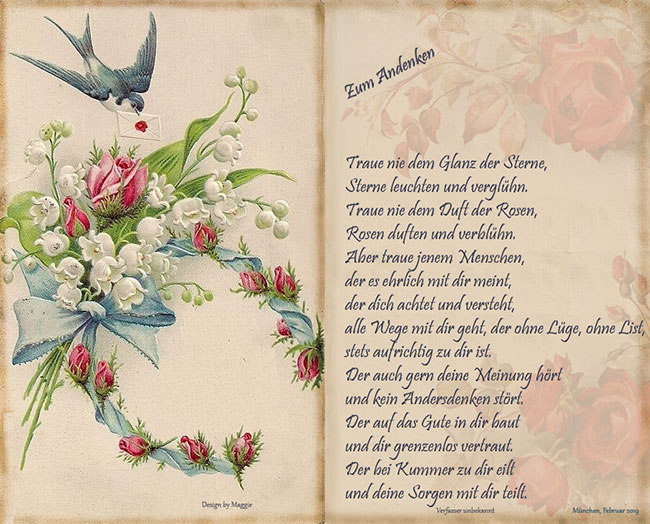 Zum Andenken
Traue nie dem Glanz der Sterne,
Sterne leuchten und verglühn.
Traue nie dem Duft der Rosen,
Rosen duften und verblühn.
Aber traue jenem Menschen,
der es ehrlich mit dir meint,
der dich achtet und versteht,
alle Wege mit dir geht, der ohne Lüge, ohne List,
stets aufrichtig zu dir ist.
Der auch gern deine Meinung hört
und kein Andersdenken stört.
Der auf das Gute in dir baut
und dir grenzenlos vertraut.
Der bei Kummer zu dir eilt
und deine Sorgen mit dir teilt.
Design by Maggie
Verfasser unbekannt
München, Februar 2019